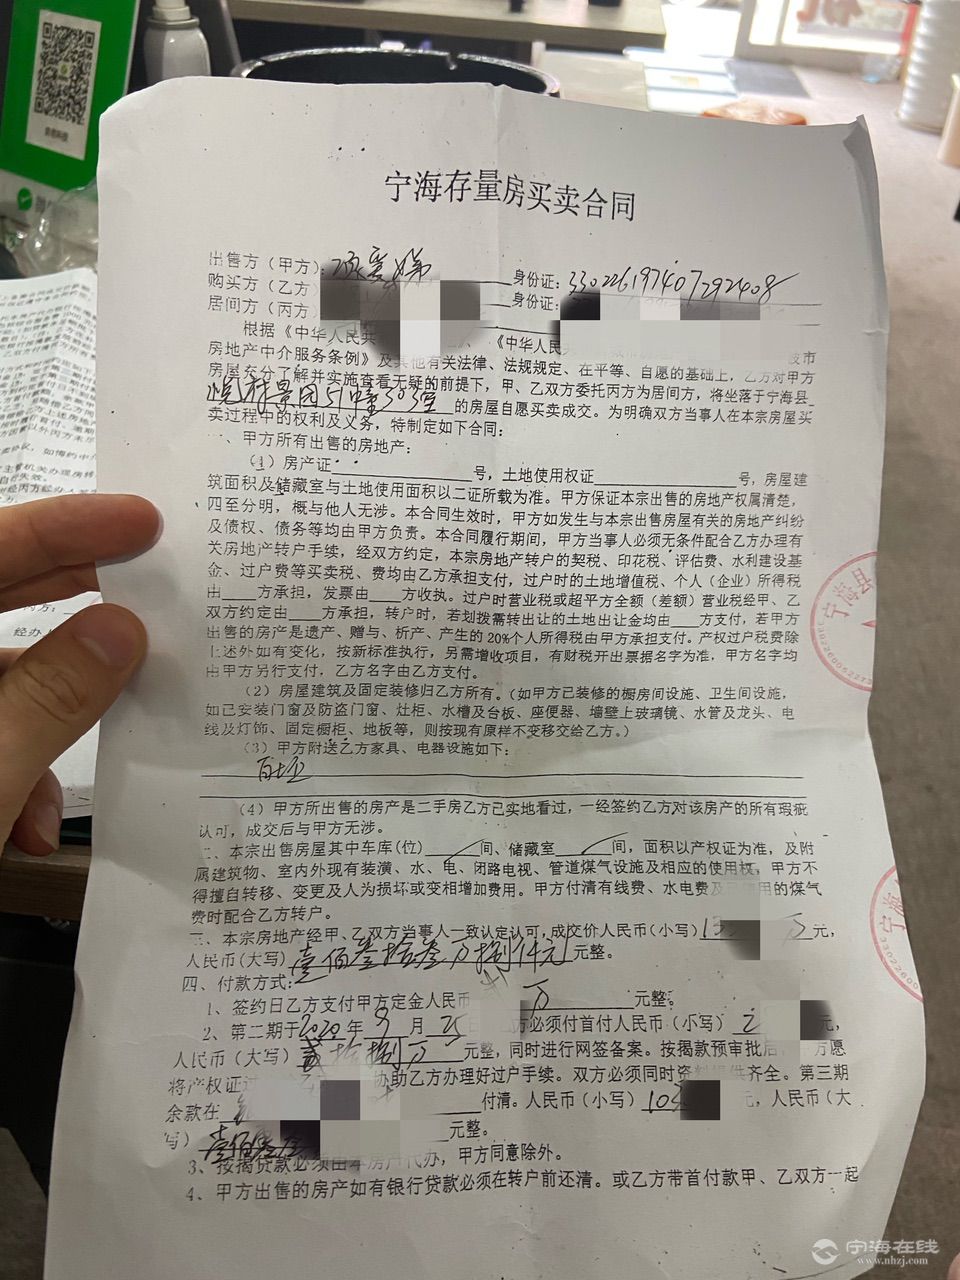 宁海存量房买卖合同
出售方（甲方）： 身份证：330226197407292408
购买方（乙方） 身份证：
居间方（丙方）
根据《中华人民共 《中华人民共 市
房地产中介服务条例》及其他有关法律、法规规定、在平等、自愿的基础上，乙方对甲方
房屋充分了解并实施查看无疑的前提下，甲、乙双方委托丙方为居间方，将坐落于宁海县
景园51幢303室的房屋自愿买卖成交。为明确双方当事人在本宗房屋买
卖过程中的权利及义务，特制定如下合同：
、甲方所有出售的房地产：
（1）房产证 号，土地使用权证 号，房屋建
筑面积及储藏室与土地使用面积以二证所载为准。甲方保证本宗出售的房地产权属清楚，
四至分明，概与他人无涉。本合同生效时，甲方如发生与本宗出售房屋有关的房地产纠纷
及债权、债务等均由甲方负责。本合同履行期间，甲方当事人必须无条件配合乙方办理有
关房地产转户手续，经双方约定，本宗房地产转户的契税、印花税、评估费、水利建设基
金、过户费等买卖税、费均由乙方承担支付，过户时的土地增值税、个人（企业）所得税
由____方承担，发票由____方收执。过户时营业税或超平方全额（差额）营业税经甲、乙
双方约定由____方承担，转户时，若划拨需转出让的土地出让金均由____方支付，若甲方
出售的房产是遗产、赠与、析产、产生的20%个人所得税由甲方承担支付。产权过户税费除
上述外如有变化，按新标准执行，另需增收项目，有财税开出票据名字为准，甲方名字均
由甲方另行支付，乙方名字由乙方支付。
（2）房屋建筑及固定装修归乙方所有。（如甲方已装修的橱房间设施、卫生间设施，
如已安装门窗及防盗门窗、灶柜、水槽及台板、座便器、墙壁上玻璃镜、水管及龙头、电
线及灯饰、固定橱柜、地板等，则按现有原样不变移交给乙方。）
（3）甲方附送乙方家具、电器设施如下：
白坯
（4）甲方所出售的房产是二手房乙方已实地看过，一经签约乙方对该房产的所有瑕疵
认可，成交后与甲方无涉。
二、本宗出售房屋其中车库(位) 间、储藏室 间，面积以产权证为准，及附
属建筑物、室内外现有装潢、水、电、闭路电视、管道煤气设施及相应的使用权，甲方不
得擅自转移、变更及人为损坏或变相增加费用。甲方付清有线费、水电费及 用的煤气
费时配合乙方转户。
三、本宗房地产经甲、乙双方当事人一致认定认可，成交价人民币(小写) 万元，
人民币(大写)壹佰叁拾叁万捌仟元元整。
四、付款方式：
1、签约日乙方支付甲方定金人民币 万 元整。
2、第二期于2020年9月25日 方必须付首付人民币（小写） 元，
人民币（大写）贰拾捌万 元整，同时进行网签备案。按揭款预审批后， 方愿
将产权证过 协助乙方办理好过户手续。双方必须同时资料提供齐全。第三期
余款在 付清。人民币（小写） 元，人民币（大
写）壹佰零 元整。
3、按揭贷款必须由 代办，甲方同意除外。
4、甲方出售的房产如有银行贷款必须在转户前还清。或乙方带首付款甲、乙双方一起
宁海县
宁海
宁海在线
www.nhzj.com